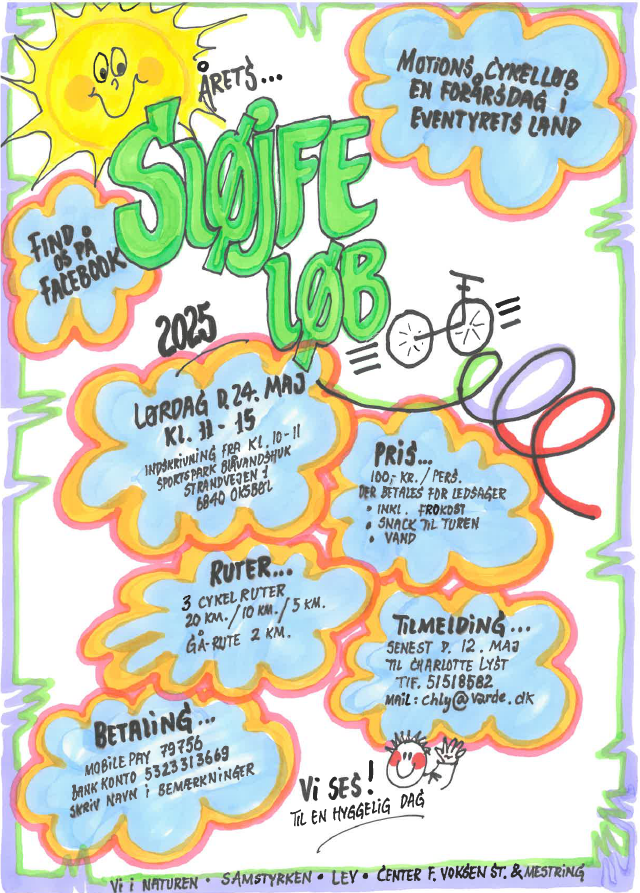 ÅRETS...
SLØJFE
LØB
MOTIONS CYKELLØB
EN FORÅRSDAG I
EVENTYRETS LAND
FIND
OS PÅ
FACEBOOK
2025
LØRDAG D. 24. MAJ
KL. 11 - 15
INDSKRIVNING FRA KL. 10-11
SPORTSPARK BLÅVANDSHUK
STRANDVEJEN 1
6840 OKSBØL
PRIS...
100,- KR. / PERS.
DER BETALES FOR LEDSAGER
• INKL. FROKOST
• SNACK TIL TUREN
• VAND
RUTER...
3 CYKELRUTER
20 KM. / 10 KM. / 5 KM.
GÅ-RUTE 2 KM.
TILMELDING...
SENEST D. 12. MAJ
TIL CHARLOTTE LYST
TLF. 51518582
MAIL: chly@varde.dk
BETALING...
MOBILE PAY 79756
BANK KONTO 5323313669
SKRIV NAVN I BEMÆRKNINGER
VI SES!
TIL EN HYGGELIG DAG
VI I NATUREN • SAMSTYRKEN • LEV • CENTER F. VOKSEN ST. & MESTRING